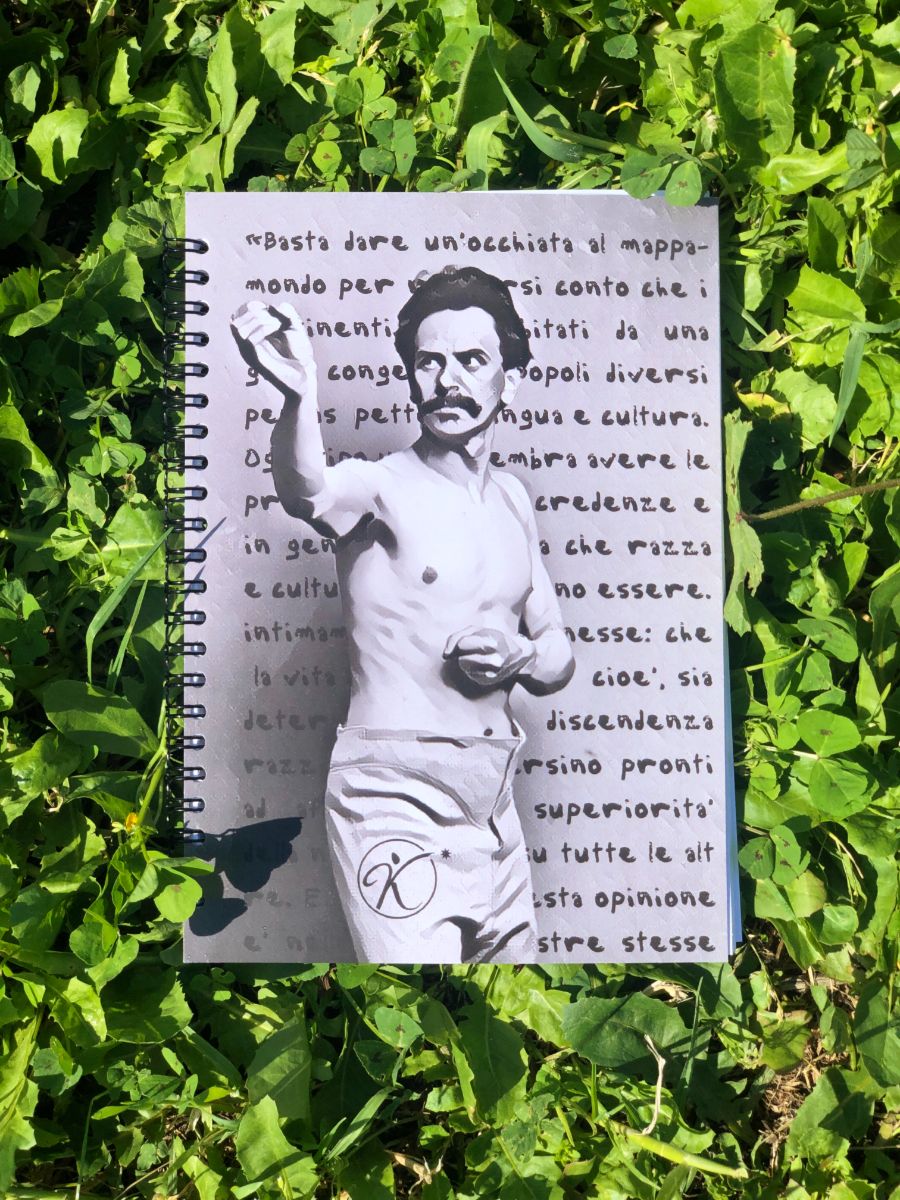 «Basta dare un'occhiata al mappa-
mondo per rsi conto che i
inenti itati da una
g conge popoli diversi
pe is pett ngua e cultura.
Og embra avere le
pr credenze e
in gen a che razza
e cultu no essere.
intimam nesse: che
la vita cioe', sia
deter discendenza
razz rsino pronti
ad superiorita'
della u tutte le alt
re. E esta opinione
e' n stre stesse
K*